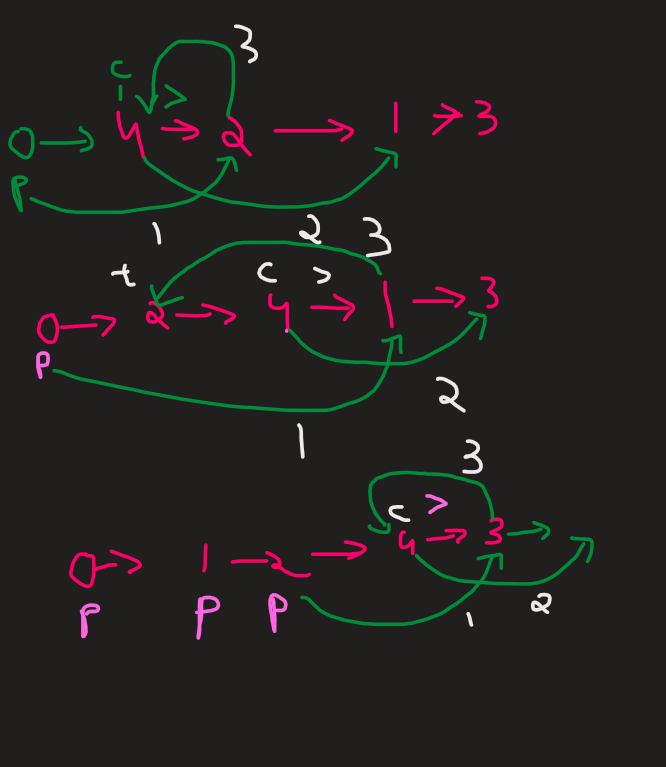 3
c >
0 → 4 → 2 → 1 → 3
P
1 2 3
t c >
0 → 2 → 4 → 1 → 3
P
2
1
3
c >
0 → 1 — 2 → 4 → 3 →
P P P 1 2